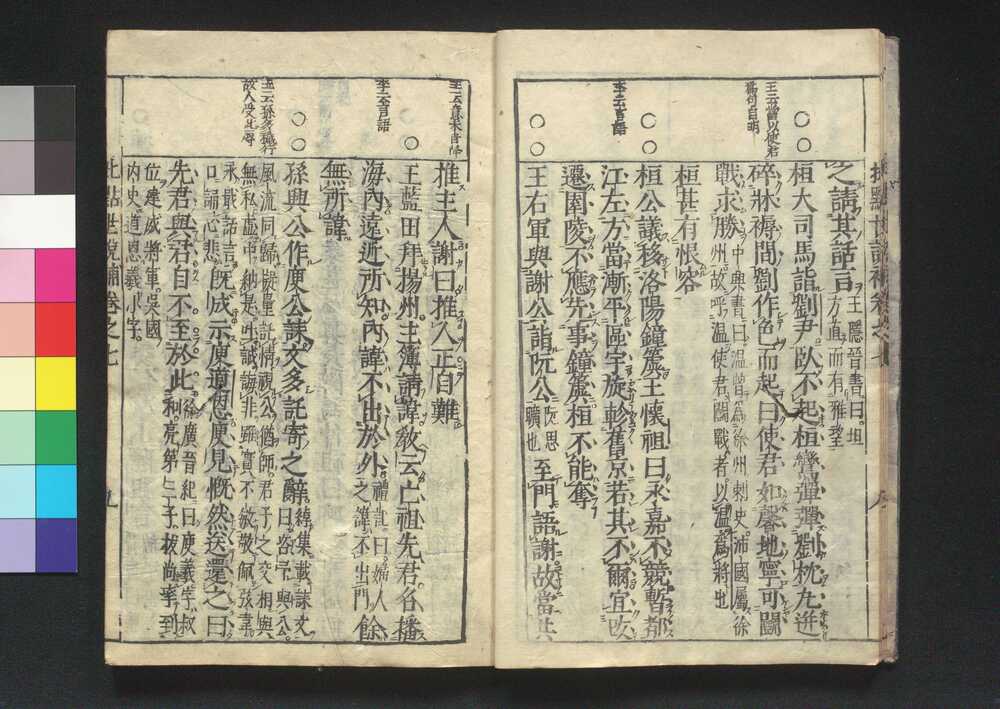 之請其話言 王隱晉書曰坦方直而有雅望
桓大司馬詣劉尹臥不起桓彎彈彈劉枕丸迸
碎牀褥間劉作色而起曰使君如馨地寧可鬬
戰求勝 中興書曰溫曾爲徐州刺史沛國屬徐州故呼溫使君鬬戰者以溫爲將也
桓甚有恨容
桓公議移洛陽鐘簴王懷祖曰永嘉不競暫都
江左方當蕩平區宇旋軫舊京若其不爾宜改
遷園陵不應先事鐘簴桓不能奪
王右軍與謝公詣阮公 阮思曠也 至門語謝故當共
王云當以使君爲句自明
李云言語
推主人謝曰推人正自難
王藍田拜揚州主簿請諱教云亡祖先君名播
海內遠近所知內諱不出於外 禮記曰婦人之諱不出門 餘
無所諱
孫興公作庾公誄文多託寄之辭 綽集載誄文曰咨予與公
風流同歸擬量託情視公猶師君子之交相與
無私虛中納是吐誠誨非雖實不敏敬佩弦韋
永戢話言口誦心悲 既成示庾道恩庾見慨然送還之曰
先君與君自不至於此 徐廣晉紀曰庾羲字叔和亮第三子拔尚率到
位建威將軍吳國內史道恩羲小字
李云言語
王云孫多穢行
故人受此辱
批點世說補卷之七
九